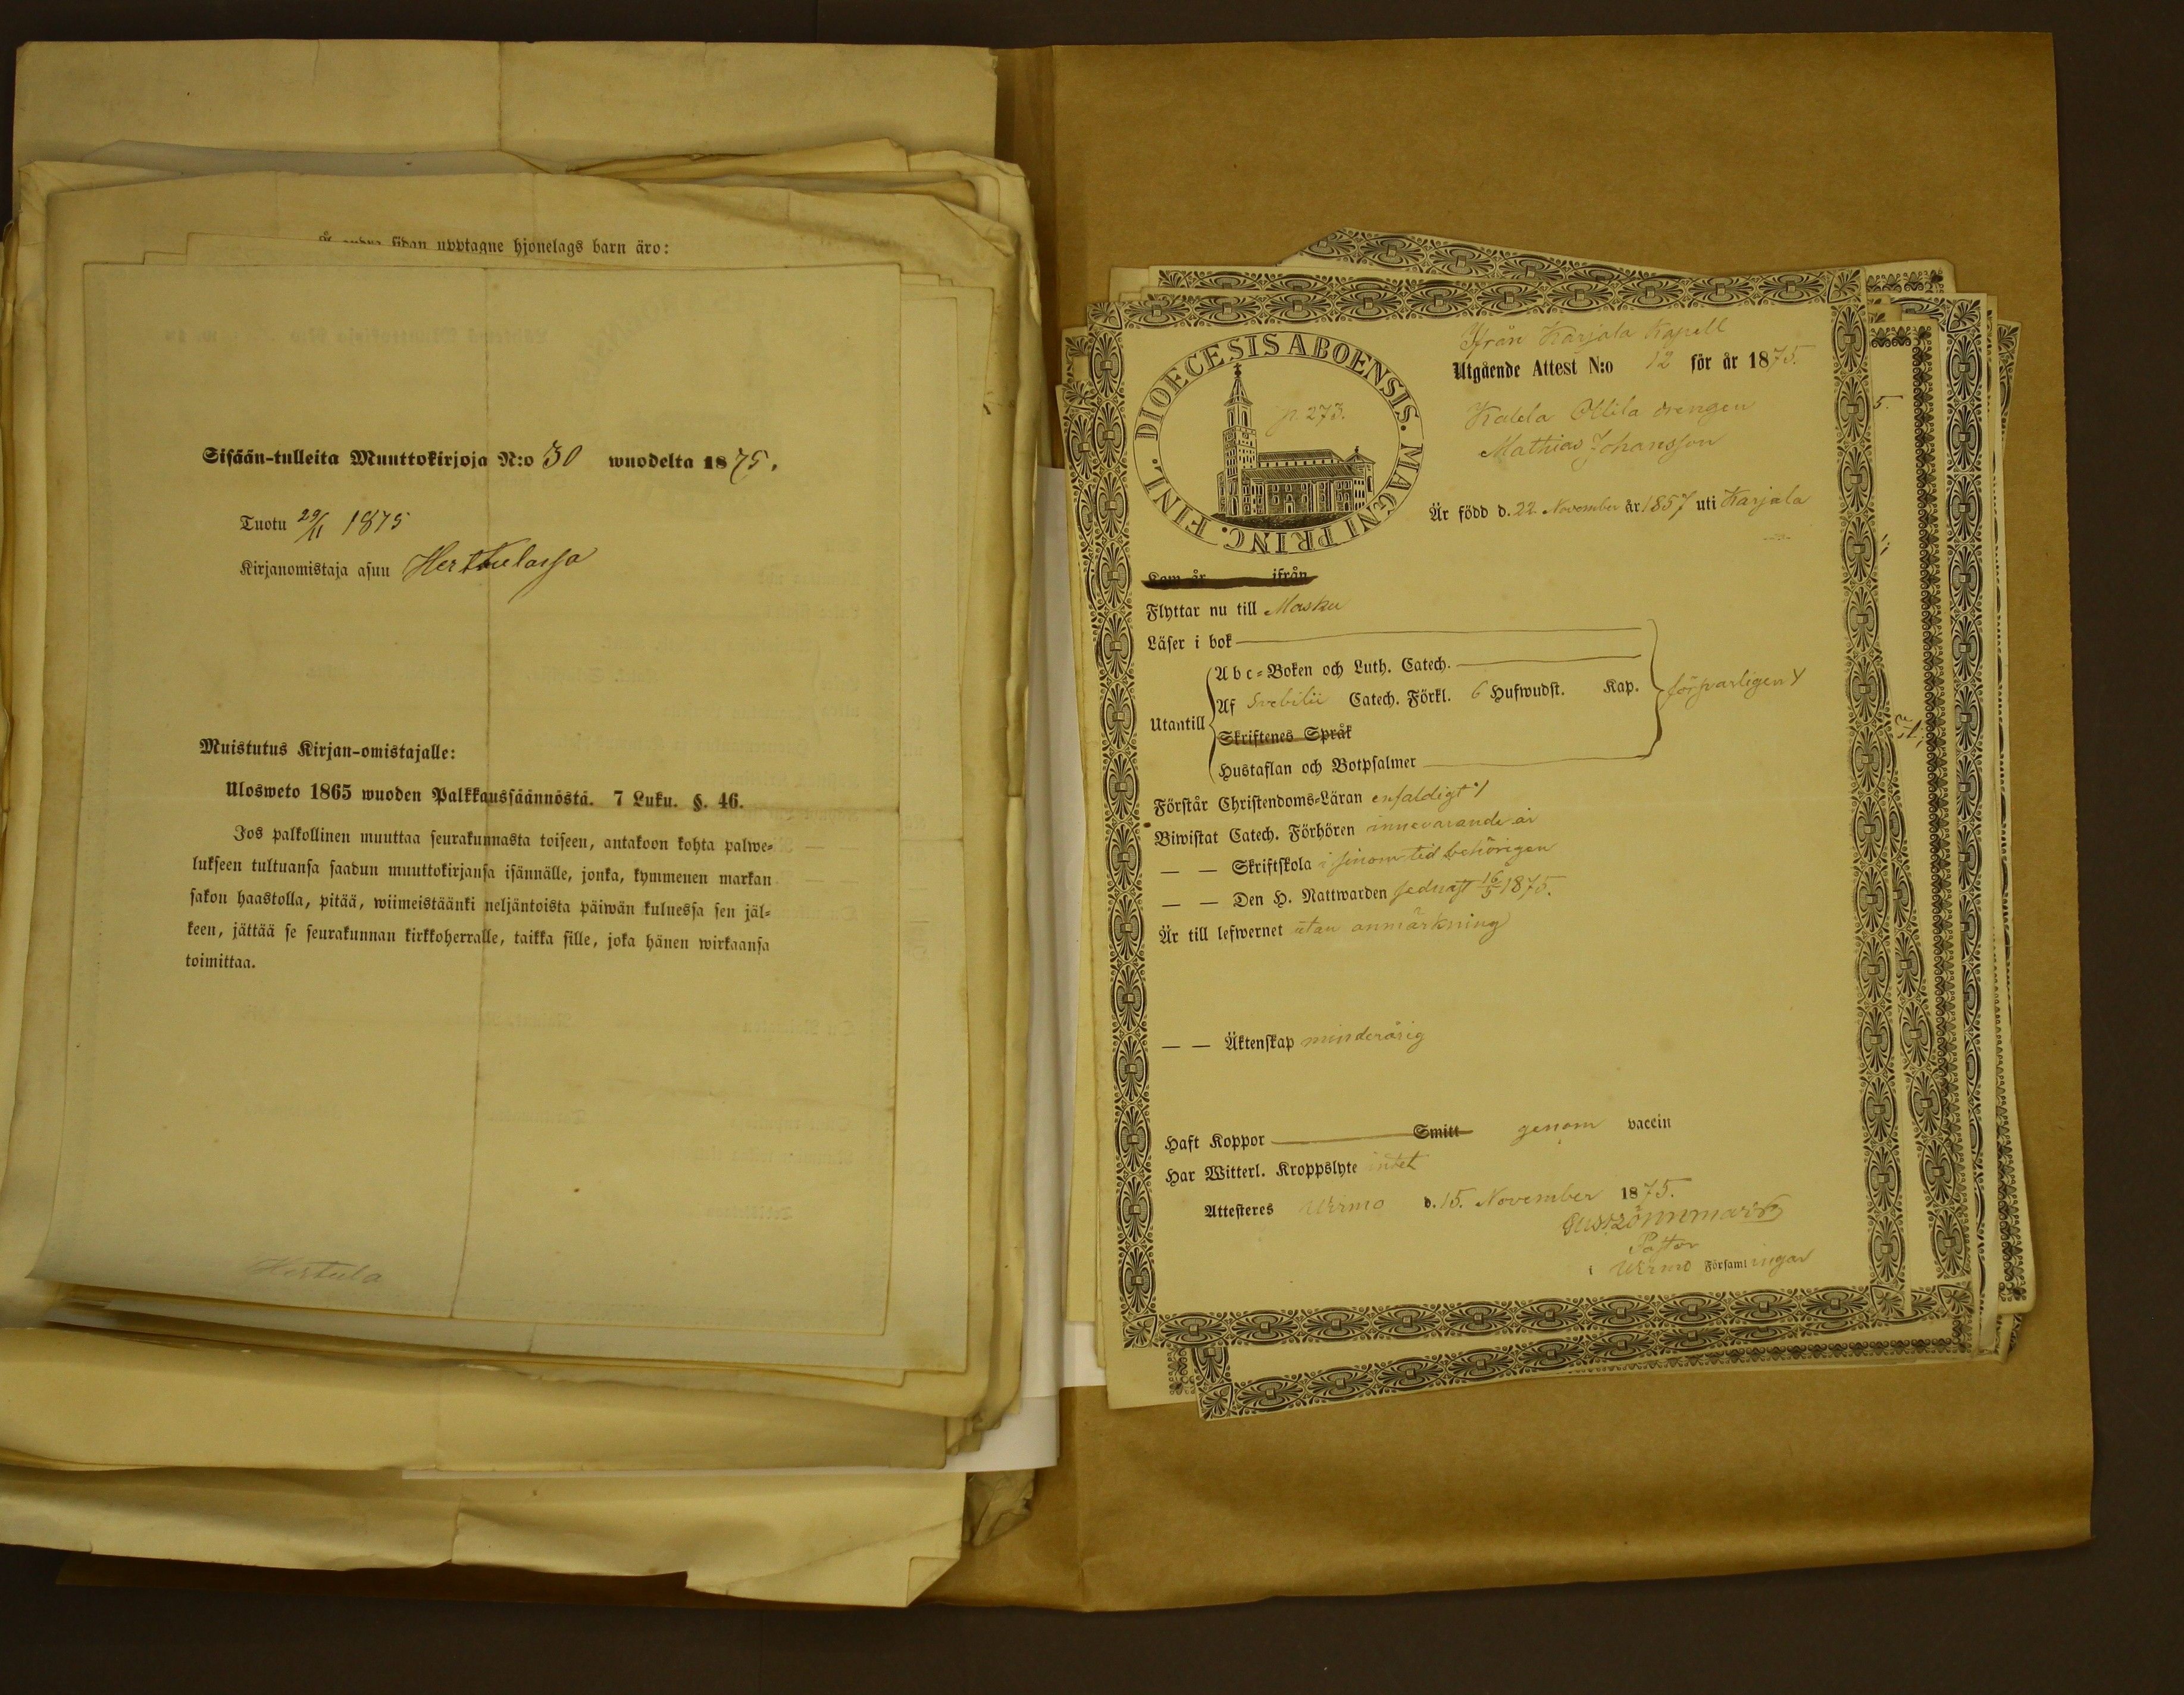 sidan upptagne hjonelags barn äro:
Sisään-tulleita Muuttokirjoja N:o 30 wuodelta 1875.
Tuotu 29/11 1875
Kirjanomistaja asuu Herttulassa
Muistutus Kirjan-omistajalle:
Ulosweto 1865 wuoden Palkkaussäännöstä. 7 Luku. §. 46.
Jos palkollinen muuttaa seurakunnasta toiseen, antakoon kohta palwe=
lukseen tultuansa saadun muuttokirjansa isännälle, jonka, kymmenen markan
sakon haastolla, pitää, wiimeistäänki neljäntoista päiwän kuluessa sen jäl=
keen, jättää se seurakunnan kirkkoherralle, taikka sille, joka hänen wirkaansa
toimittaa.
Hertula
DIOECESIS ABOENSIS. MAGNI PRINC. FINL.
p. 273.
Ifrån Karjala Kapell
Utgående Attest N:o 12 för år 1875.
Kalela Ollila drengen
Mathias Johansson
Är född d. 22 November år 1857 uti Karjala
Kom år ifrån
Flyttar nu till Masku
Läser i bok
Utantill
Abc=Boken och Luth. Catech.
Af Svebilii Catech. Förkl. 6 Hufwudst. Kap.
försvarligen
Skriftenes Språk
Hustaflan och Botpsalmer
Förstår Christendoms=Läran enfaldigt
Biwistat Catech. Förhören innevarande år
— — Skriftskola i sinom tid behörigen
— — Den H. Nattwarden sednast 16/5 1875.
Är till lefwernet utan anmärkning
— — Äktenskap minderårig
Haft Koppor Smitt genom vaccin
Har Witterl. Kroppslyte intet
Attesteres Wirmo d. 15. November 1875.
Pastor
i Wirmo Församlingar